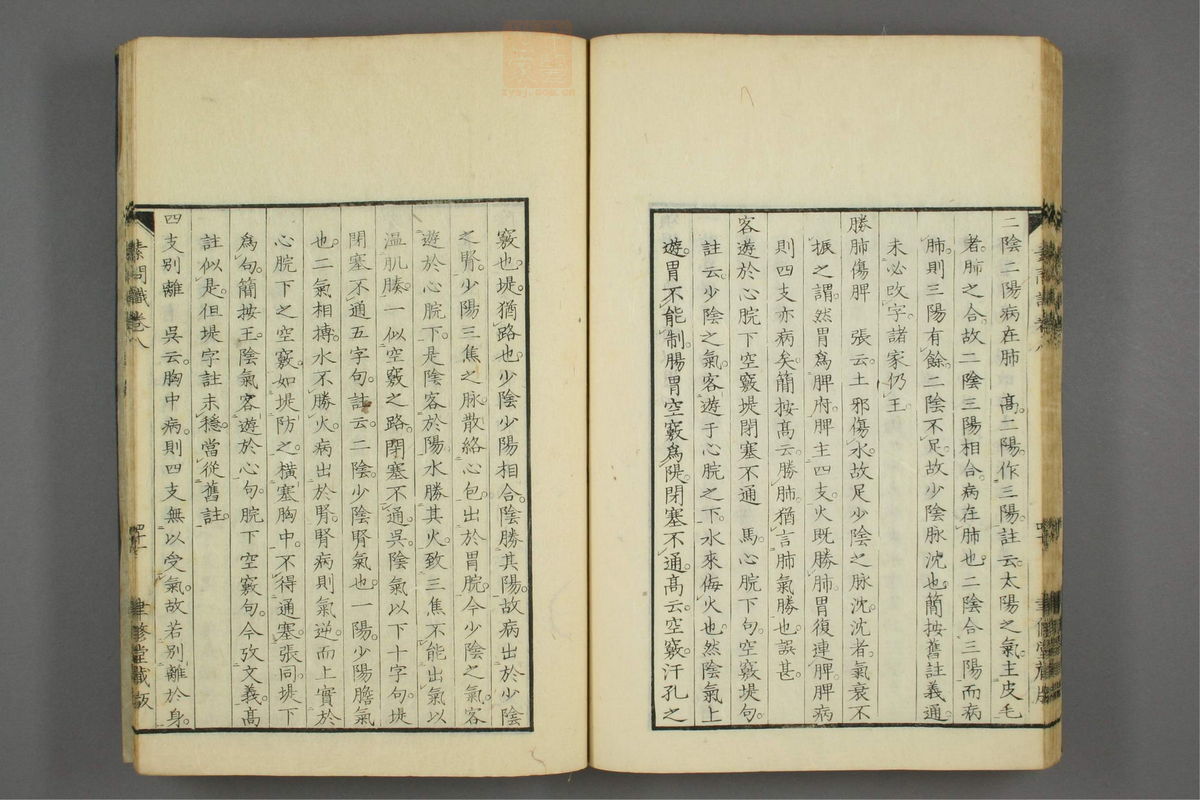 二陰二陽病在肺　高二陽作三陽註云太陽之氣主皮毛
者肺之合故二陰三陽相合病在肺也二陰合三陽而病
肺則三陽有餘二陰不足故少陰脉沈也簡按舊註義通
未必改字諸家仍王
勝肺傷脾　張云土邪傷水故足少陰之脉沈沈者氣衰不
振之謂然胃爲脾府脾主四支火既勝肺胃復連脾脾病
則四支亦病矣簡按高云勝肺猶言肺氣勝也誤甚
客遊於心脘下空竅堤閉塞不通　馬心脘下句空竅堤句
註云少陰之氣客遊于心脘之下水來侮火也然陰氣上
遊胃不能制腸胃空竅爲隄閉塞不通高云空竅汗孔之
竅也堤猶路也少陰少陽相合陰勝其陽故病出於少陰
之腎少陽三焦之脉散絡心包出於胃脘今少陰之氣客
遊於心脘下是陰客於陽水勝其火致三焦不能出氣以
温肌腠一似空竅之路閉塞不通吳陰氣以下十字句堤
閉塞不通五字句註云二陰少陰腎氣也一陽少陽膽氣
也二氣相搏水不勝火病出於腎腎病則氣逆而上實於
心脘下之空竅如堤防之橫塞胸中不得通塞張同堤下
爲句簡按王陰氣客遊於心句脘下空竅句今攷文義高
註似是但堤字註未穩當從舊註
四支别離　吳云胸中病則四支無以受氣故若别離於身
素問識卷八
聿修堂藏版